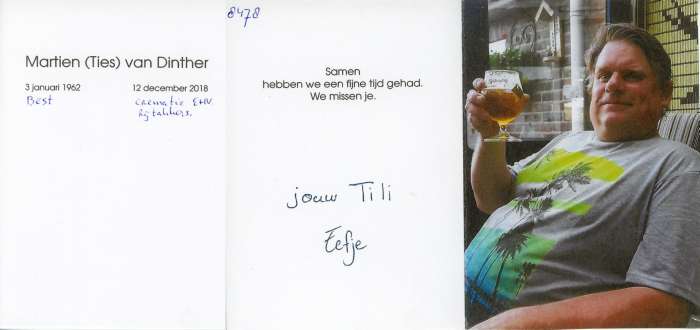 Martien (Ties) van Dinther
3 januari 1962 12 december 2018
Best crematie EHV.
Rijtakkers.
8478
Samen
hebben we een fijne tijd gehad.
We missen je.
jouw Tili
Eefje